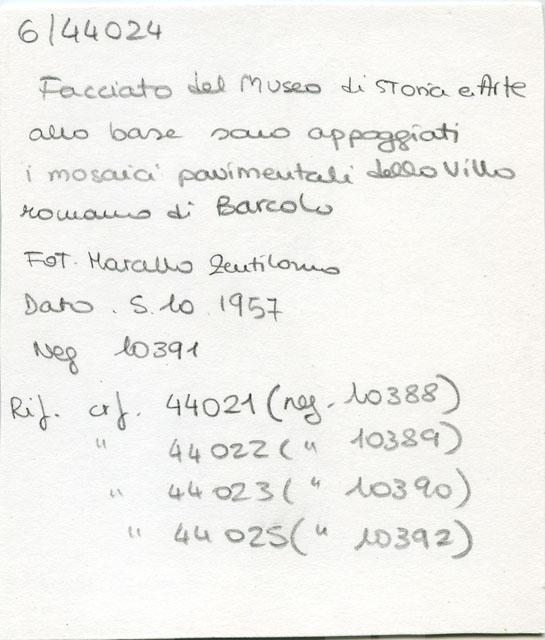 6/44024
Facciata del Museo di Storia e Arte
alla base sono appoggiati
i mosaici pavimentali della Villa
romana di Barcola
Fot. Maralla Zentilomo
Data . 5.10 1957
Neg 10391
Rif. crf. 44021 (neg. 10388)
" 44022 ( " 10389)
" 44023 ( " 10390)
" 44025 ( " 10392)